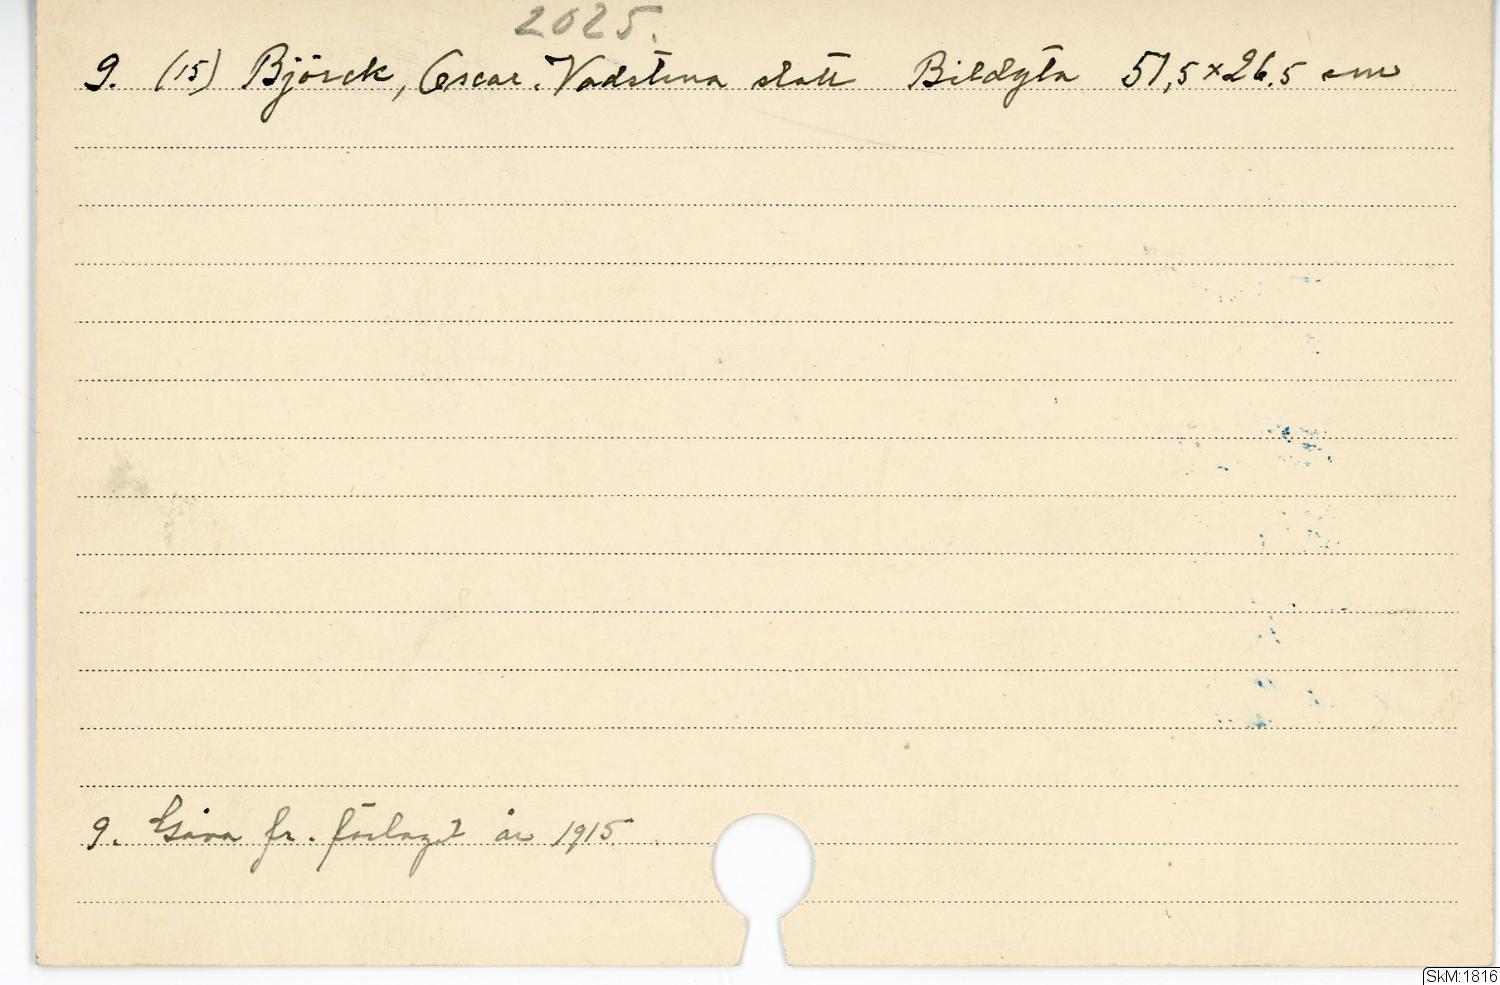 2025.
9. (15) Björck, Oscar. Vadstena slott Bildyta 51,5 x 26.5 cm
9. Gåva fr. förlaget år 1915
SkM:1816